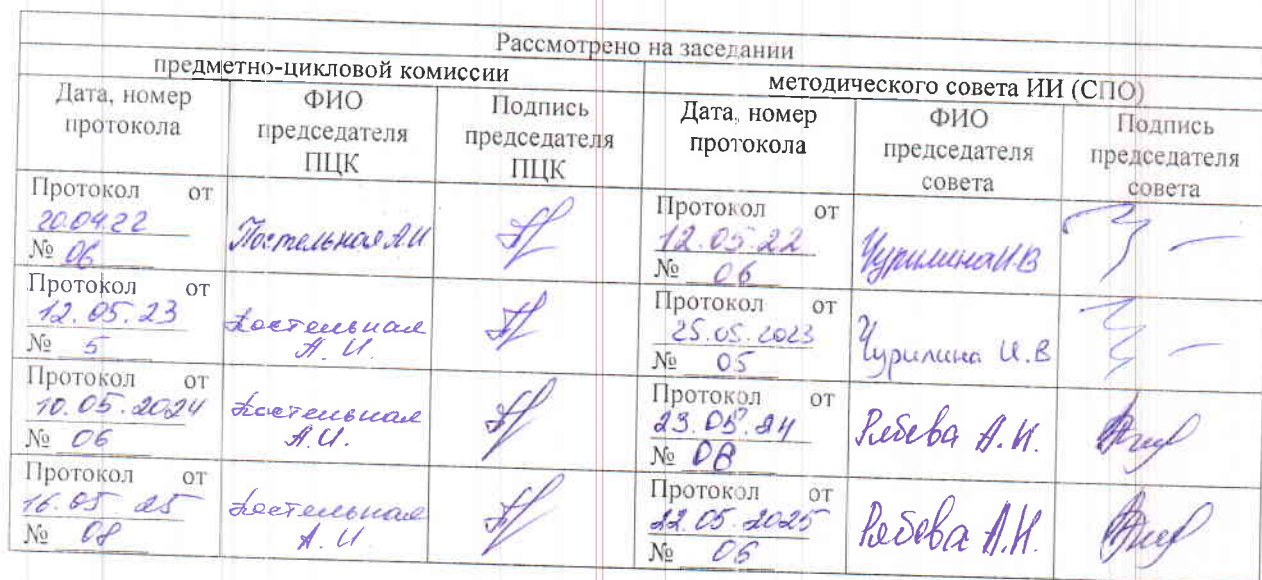 Рассмотрено на заседании
предметно-цикловой комиссии
методического совета ИИ (СПО)
Дата, номер
протокола
ФИО
председателя
ПЦК
Подпись
председателя
ПЦК
Дата, номер
протокола
ФИО
председателя
совета
Подпись
председателя
совета
Протокол от
20.04.22
№ 06
Постельная А.И
Протокол от
12.05.22
№ 06
Чурилина И.В
Протокол от
12.05.23
№ 5
Постельная
А.И.
Протокол от
25.05.2023
№ 05
Чурилина И.В
Протокол от
10.05.2024
№ 06
Постельная
А.И.
Протокол от
23.05.24
№ 08
А.Н.
Протокол от
16.05.25
№ 08
Постельная
А.И.
Протокол от
22.05.2025
№ 06
А.Н.